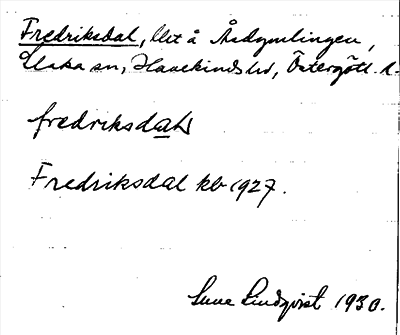 Fredriksdal, llt å Åsdymlingen,
Ulrika sn, Hanekinds hd, Östergötl. l.
fredriksdal
Fredriksdal kb 1927.
Sune Lindqvist 1930.